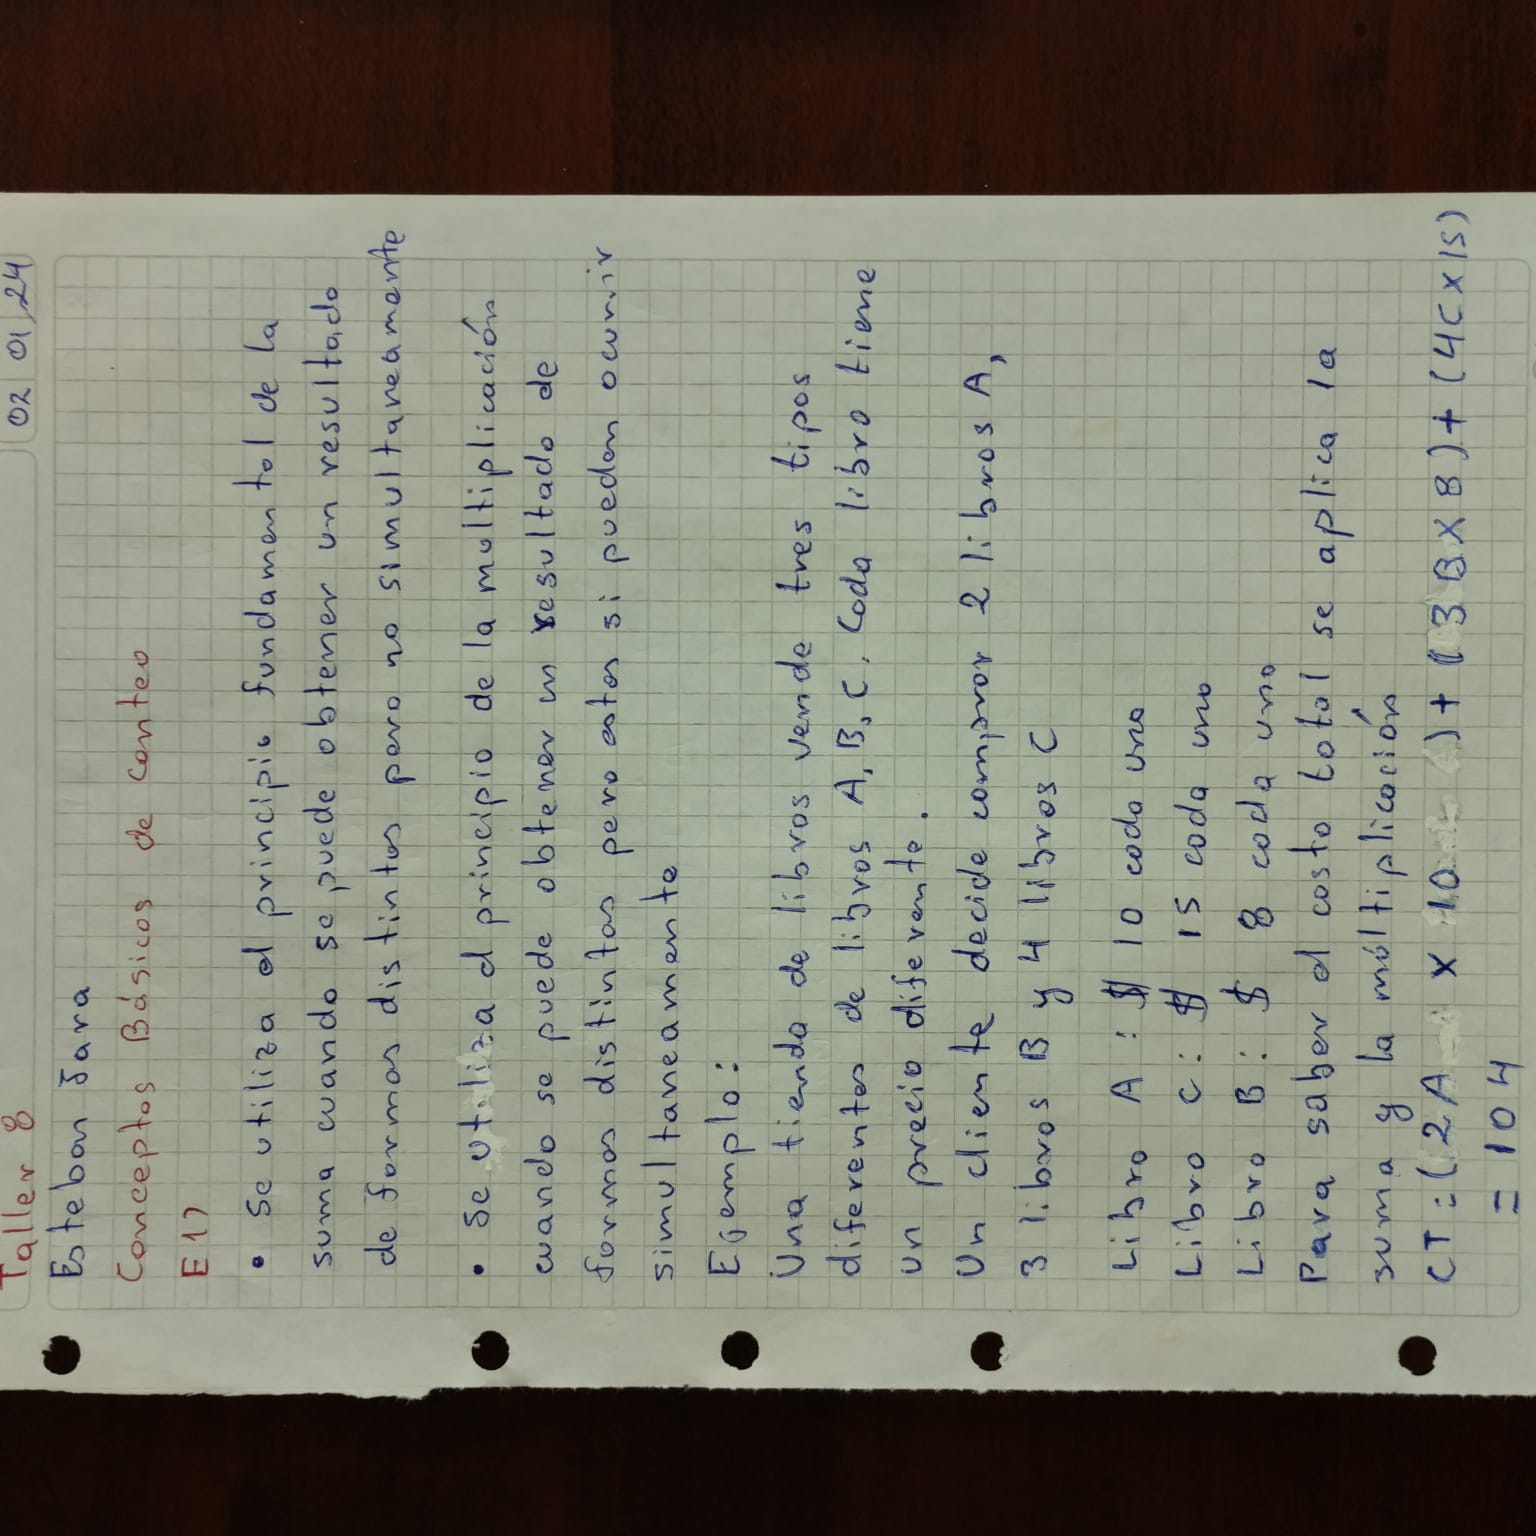 Taller 8
02 01 24
Esteban Jara
Conceptos Básicos de conteo
E1)
• Se utiliza el principio fundamental de la
suma cuando se puede obtener un resultado
de formas distintas pero no simultaneamente
• Se utiliza el principio de la multiplicación
cuando se puede obtener un resultado de
formas distintas pero estas si puedan ocurrir
simultaneamente
Ejemplo:
Una tienda de libros vende tres tipos
diferentes de libros A, B, C. Cada libro tiene
un precio diferente.
Un cliente decide comprar 2 libros A,
3 libros B y 4 libros C
Libro A: $ 10 cada uno
Libro C: $ 15 cada uno
Libro B: $ 8 cada uno
Para saber el costo total se aplica la
suma y la móltiplicación
CT: (2A x 10) + (3B x 8) + (4C x 15)
= 104